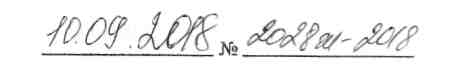 10.09.2018 № 2028м-2018